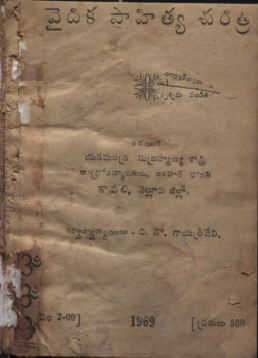 వైదిక సాహిత్య చరిత్ర
రచయిత
సుబ్రహ్మణ్య శాస్త్రి
ఆంధ్రోపన్యాసకుడు, జవహర్ భారతి
కావలి, నెల్లూరు జిల్లా.
సర్వస్వామ్యములు - వి. వొ. గాయత్రీదేవి.
వెల 2-00] 1969 [ప్రతులు 500